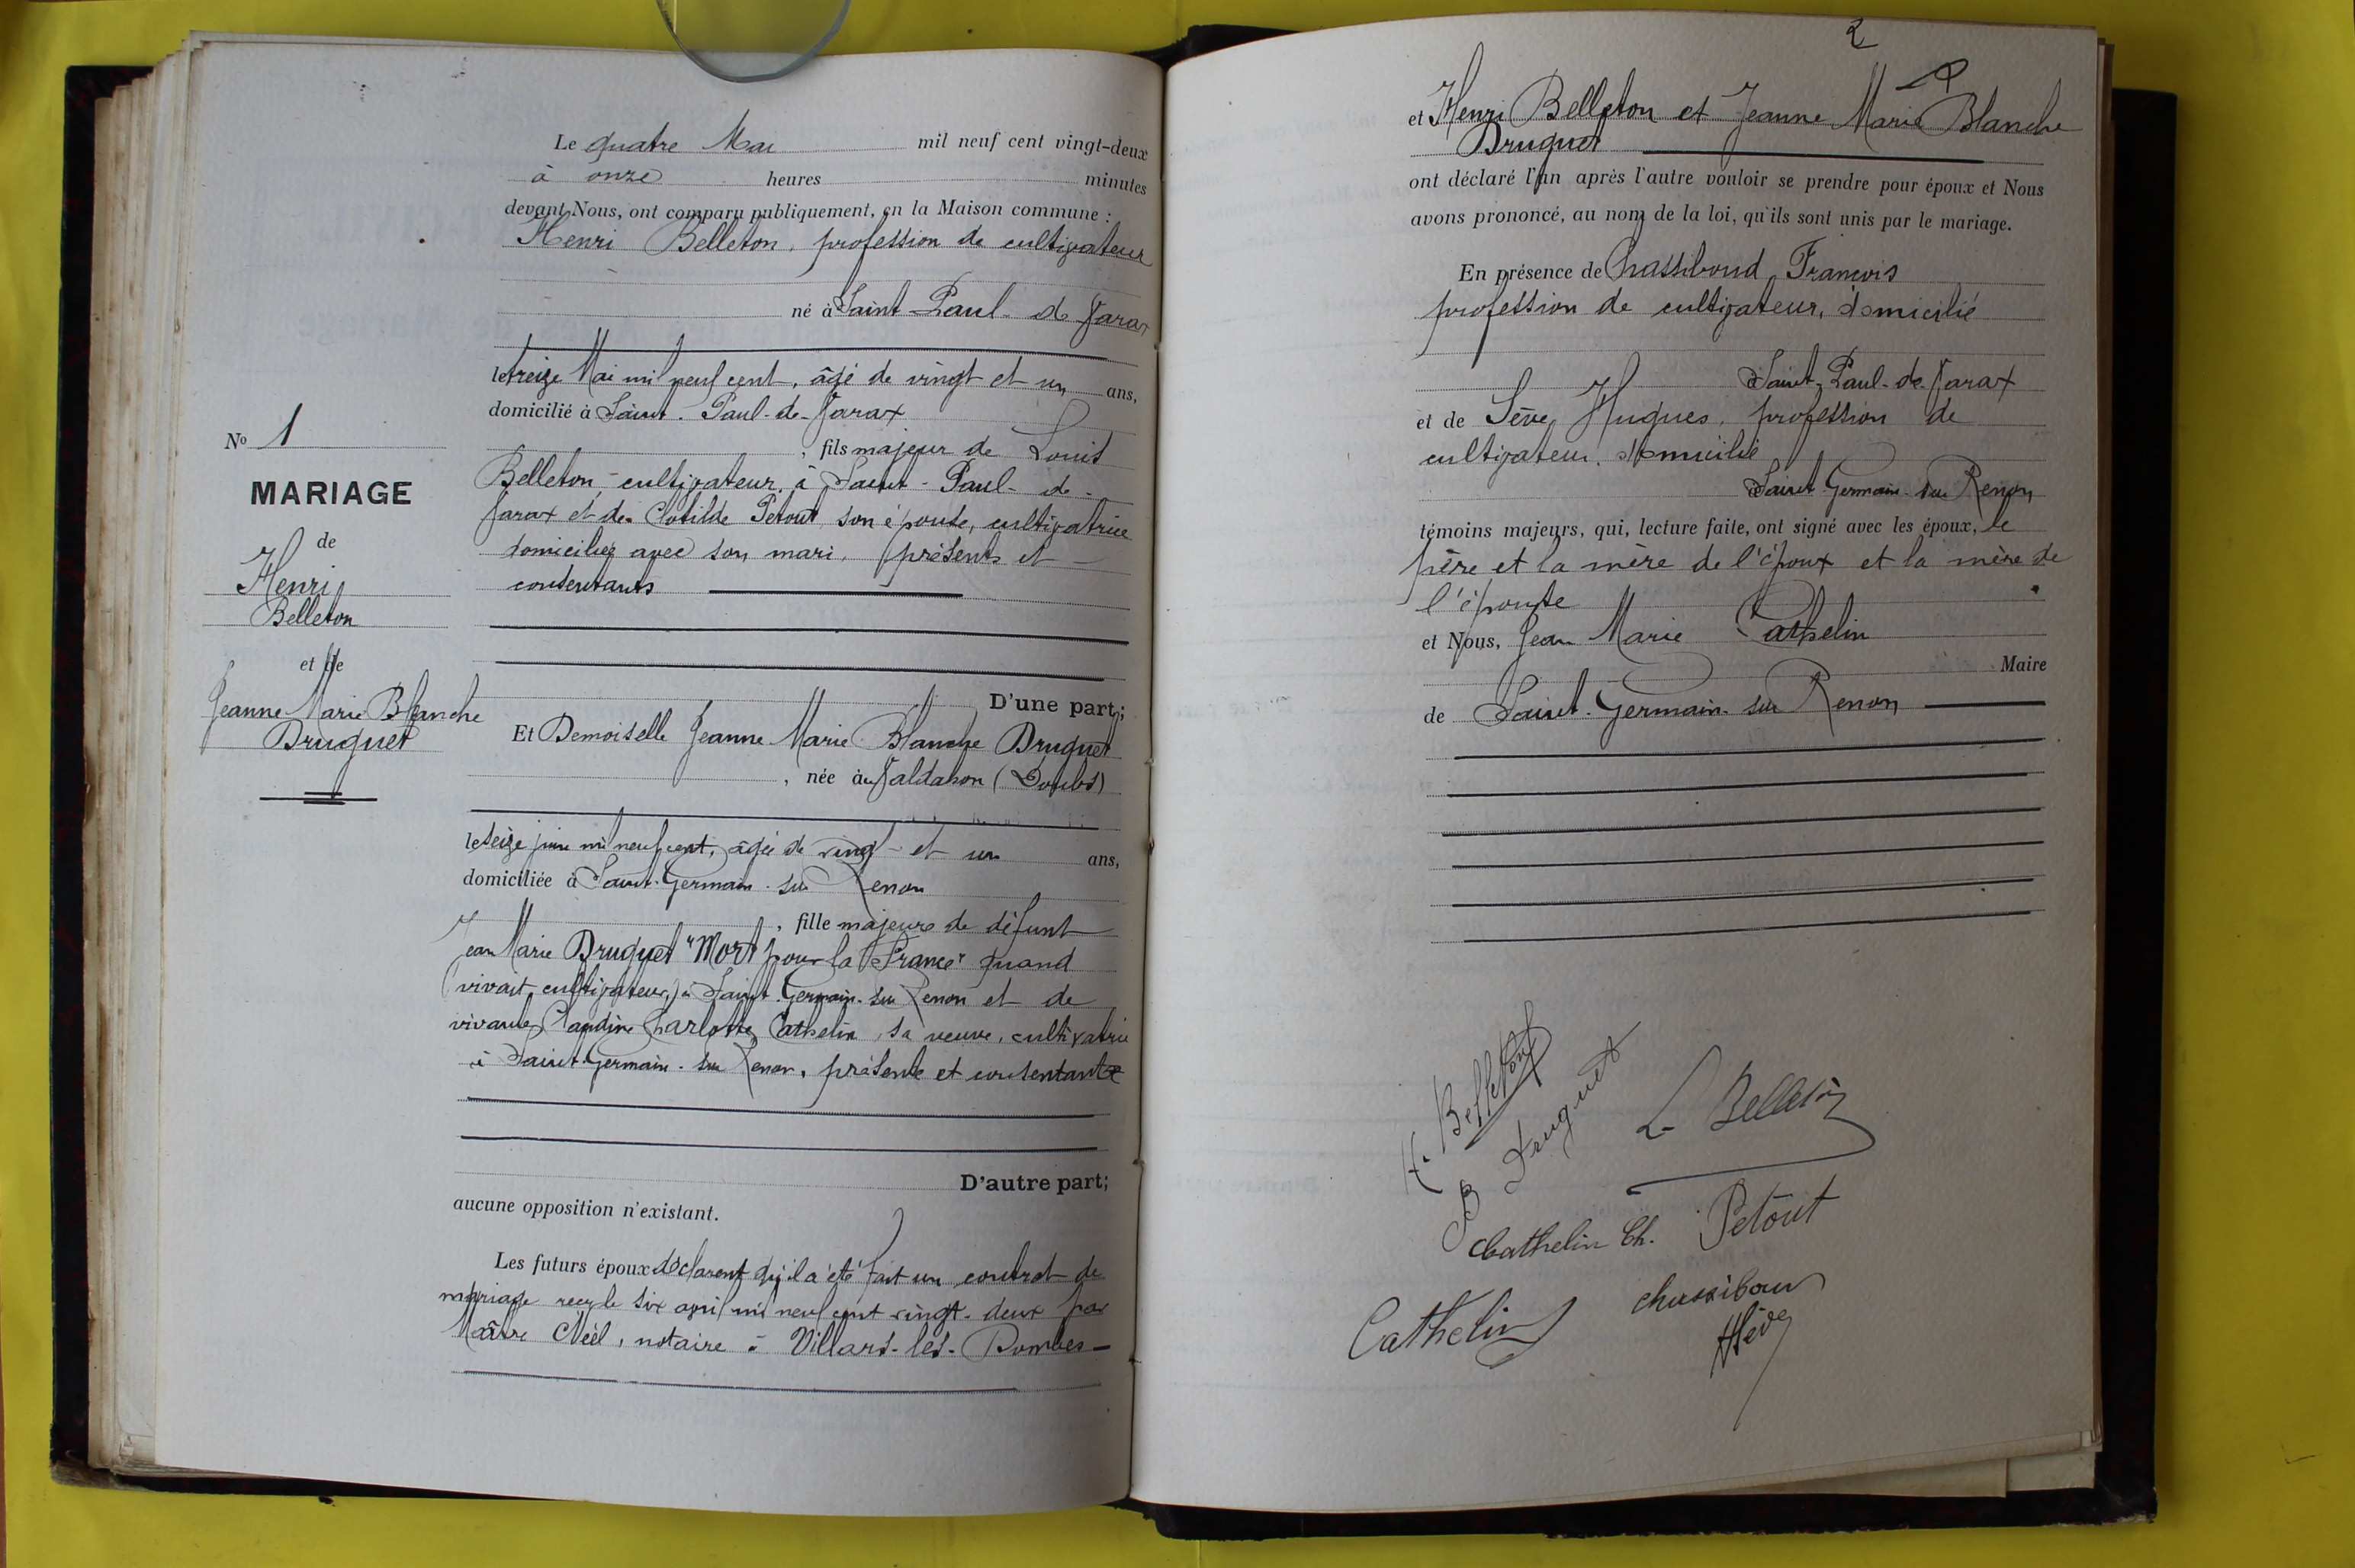 Le quatre Mai mil neuf cent vingt-deux
à onze heures minutes
devant Nous, ont comparu publiquement, en la Maison commune :
Henri Belleton, profession de cultivateur
né à Saint-Paul-de-Varax
le treize Mai mil neuf cent, âgé de vingt et un ans,
domicilié à Saint-Paul-de-Varax
, fils majeur de Louis
Belleton cultivateur, à Saint-Paul-de-
Varax et de Clotilde Petout son épouse, cultivatrice
domiciliée avec son mari, présents et
consentants
D'une part;
Et Demoiselle Jeanne Marie Blanche Druguet
, née à Valdahon (Doubs)
le seize juin mil neuf cent, âgée de vingt et un ans,
domiciliée à Saint-Germain-sur Renon
, fille majeure de défunt
Jean Marie Druguet "Mort pour la France" quand
vivait cultivateur, à Saint-Germain-sur Renon et de
vivante Claudine Charlotte Cathelin, sa veuve, cultivatrice
à Saint-Germain-sur Renon, présente et consentante
D'autre part;
aucune opposition n'existant.
Les futurs époux déclarent qu'il a été fait un contrat de
mariage reçu le six avril mil neuf cent vingt-deux par
Maître Néel, notaire à Villars-les-Dombes
No 1
MARIAGE
de
Henri
Belleton
et de
Jeanne Marie Blanche
Druguet
2
et Henri Belleton et Jeanne Marie Blanche
Druguet
ont déclaré l'un après l'autre vouloir se prendre pour époux et Nous
avons prononcé, au nom de la loi, qu'ils sont unis par le mariage.
En présence de Chassiboud François
profession de cultivateur, domicilié
à Saint-Paul-de-Varax
et de Sève Hugues, profession de
cultivateur, domicilié
à Saint-Germain-sur Renon
témoins majeurs, qui, lecture faite, ont signé avec les époux, le
père et la mère de l'époux et la mère de
l'épouse
et Nous, Jean Marie Cathelin
Maire
de Saint-Germain-sur Renon
H. Belleton
B Druguet
L. Belleton
Cathelin Ch. Petout
Cathelin chassiboud
H Sève